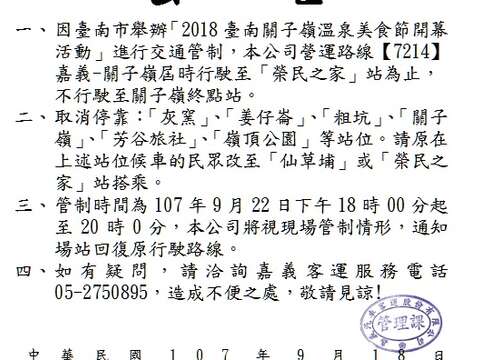 一、因臺南市舉辦「2018 臺南關子嶺溫泉美食節開幕
活動」進行交通管制，本公司營運路線【7214】
嘉義-關子嶺屆時行駛至「榮民之家」站為止，
不行駛至關子嶺終點站。
二、取消停靠：「灰窯」、「姜仔崙」、「粗坑」、「關子
嶺」、「芳谷旅社」、「嶺頂公園」等站位。請原在
上述站位候車的民眾改至「仙草埔」或「榮民之
家」站搭乘。
三、管制時間為 107 年 9 月 22 日下午 18 時 00 分起
至 20 時 0 分，本公司將視現場管制情形，通知
場站回復原行駛路線。
四、如有疑問，請洽詢嘉義客運服務電話
05-2750895，造成不便之處，敬請見諒!
管理課
中 華 民 國 1 0 7 年 9 月 1 8 日